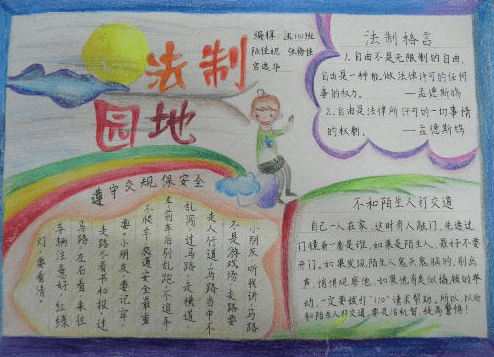 法制
园地
编辑:
张榕佳
法制格言
1.自由不是无限制的自由,
自由是一种能做法律许可的任何
事的权力。 —孟德斯鸠
2.自由是法律所许可的一切事情
的权利。 —孟德斯鸠
遵守交规保安全
小朋友听我讲,马路
不是游戏场,走路要
走人行道,马路当中不
乱闯,过马路,走横道
车前车后别乱跑,不追车
不候车,交通安全最重
要,小朋友,要记牢,
走路不看书和报,过
马路,左右看,来往
车辆注意好,红绿
灯要看清。
不和陌生人打交道
自己一人在家,这时有人敲门,先透过
门镜看一看是谁。如果是陌生人,最好不要
开门。如果发现陌生人鬼头鬼脑的,别出
声,悄悄观察他,如果他有类似撬锁的举
动,一定要拨打"110"请求帮助。所以,以后
和陌生人打交道,要灵活机智,提高警惕!